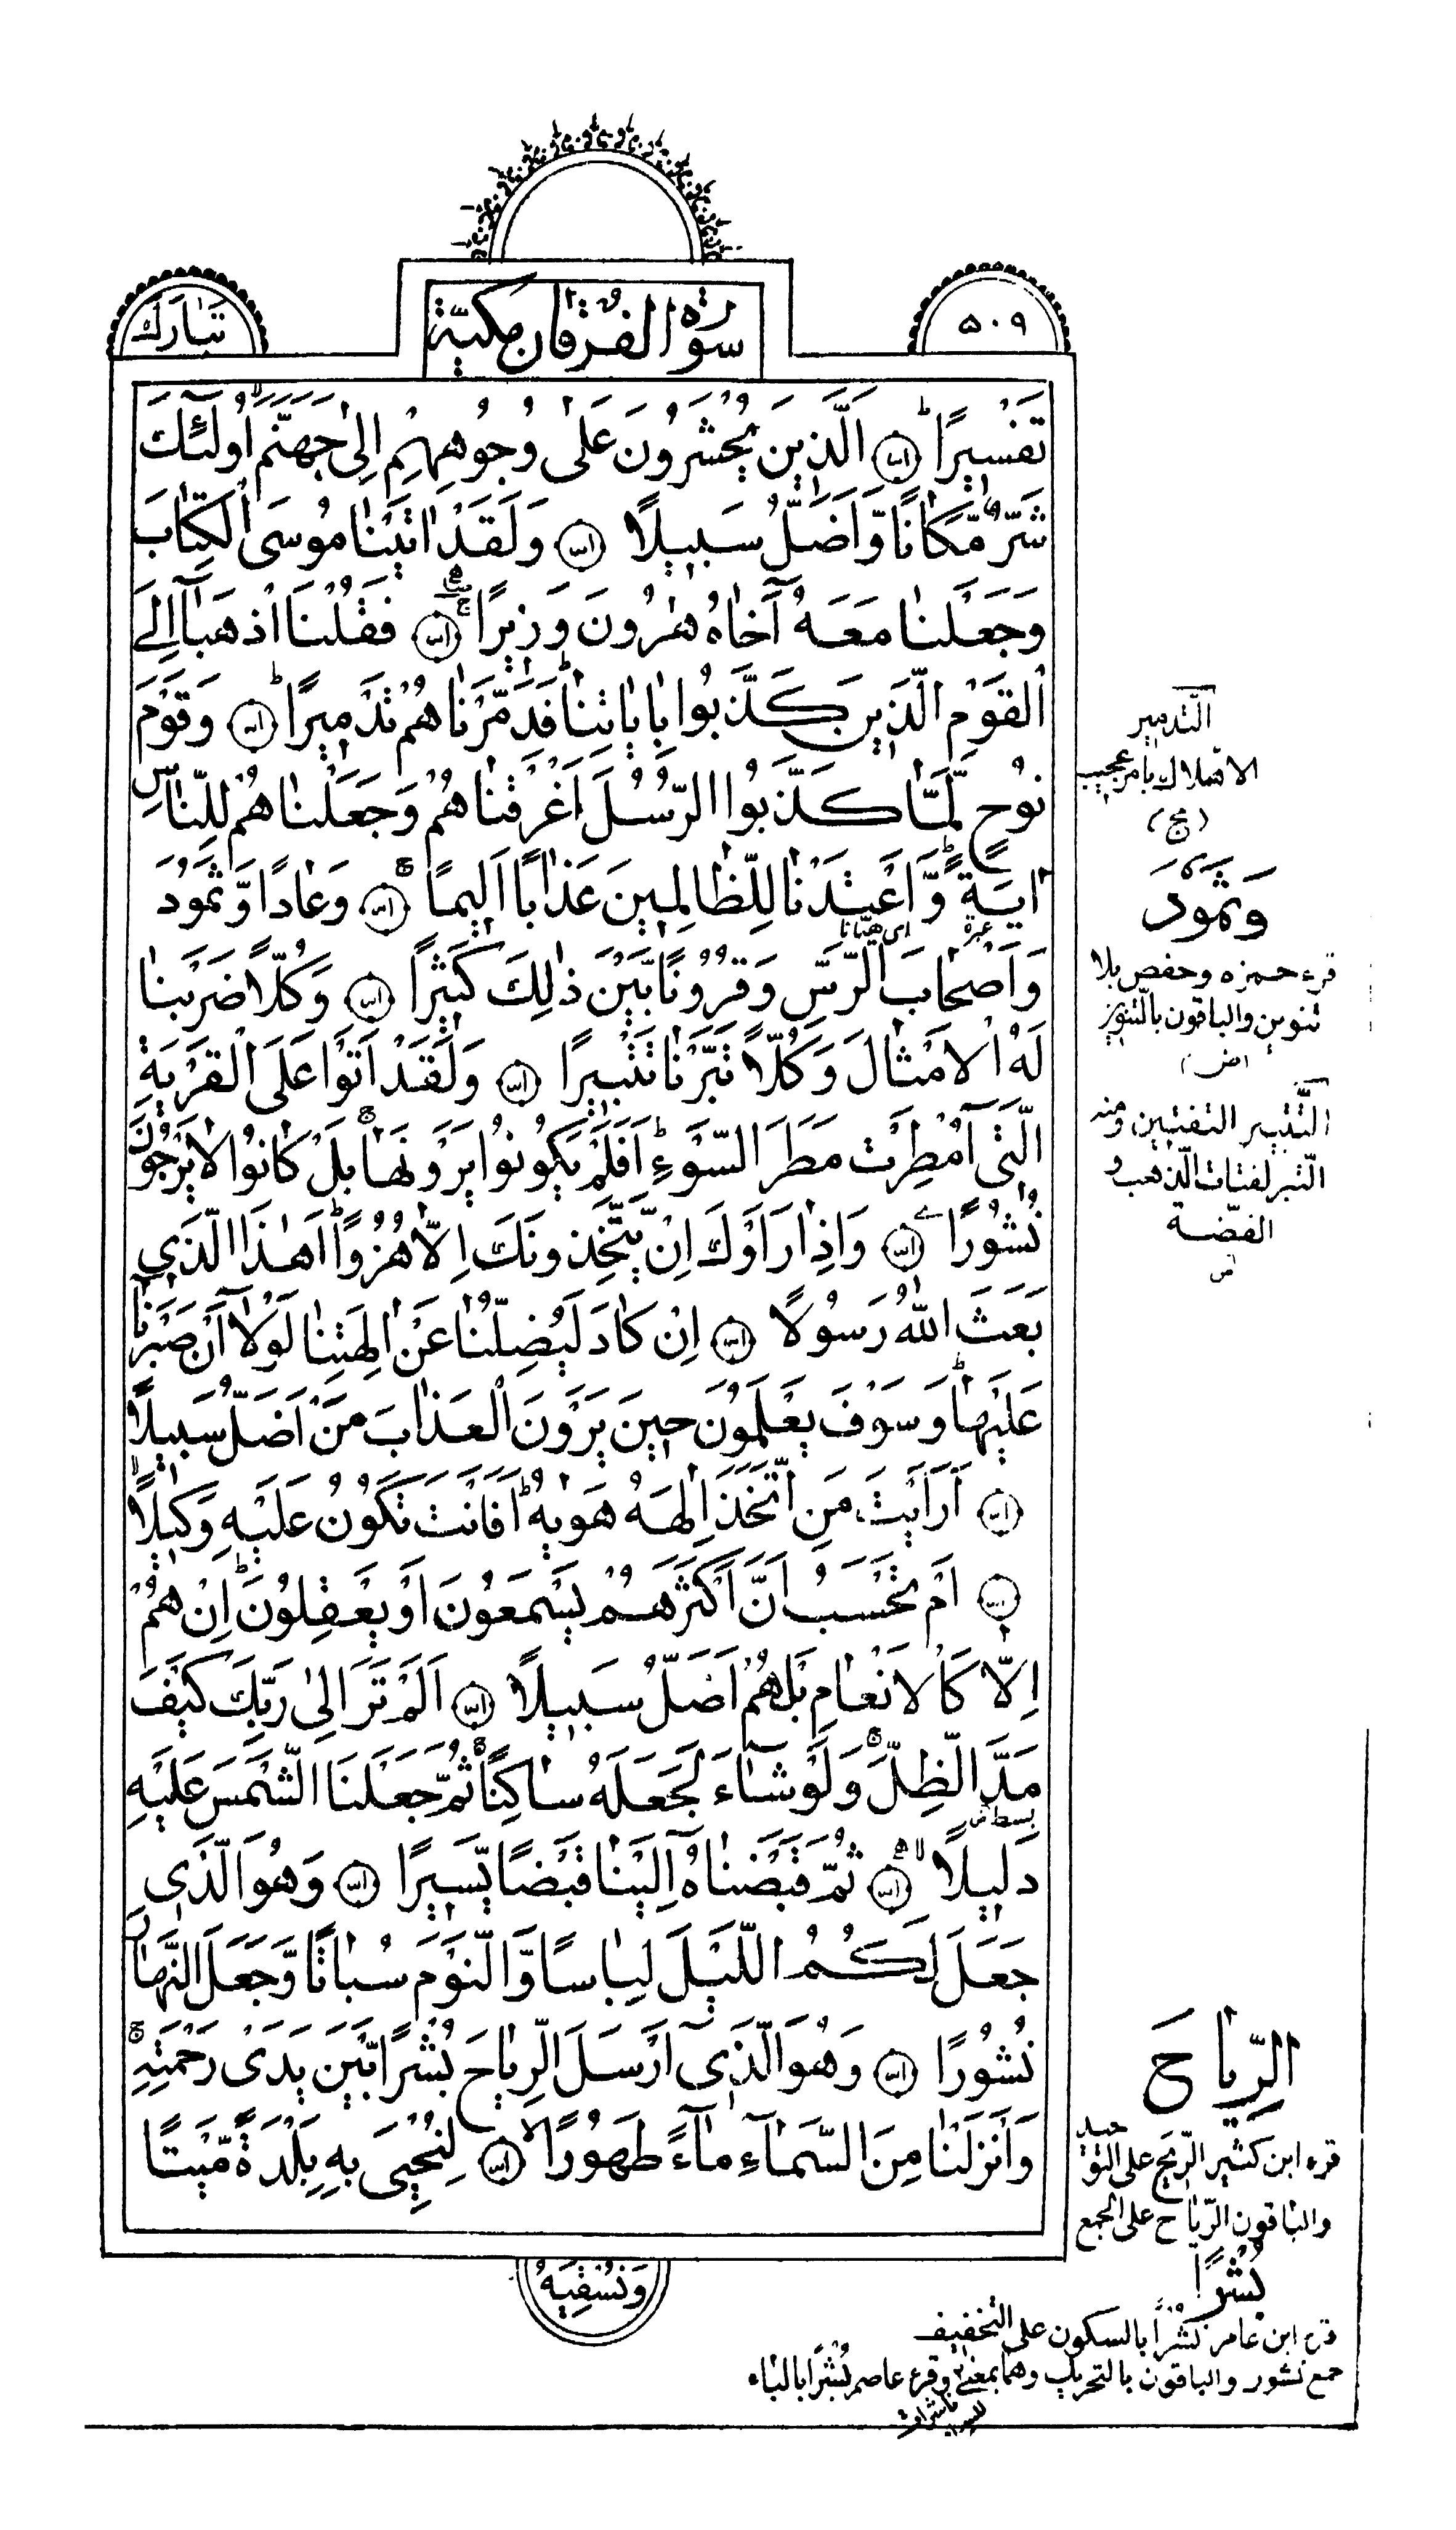 ۵۰۹
سورة الفرقان مكية
تبارك
تَفْسِيرًا الَّذِينَ يُحْشَرُونَ عَلٰى وُجُوهِهِمْ اِلٰى جَهَنَّمَ اُولٰٓئِكَ
شَرٌّ مَّكَانًا وَّاَضَلُّ سَبِيلًا وَلَقَدْ اٰتَيْنَا مُوسَى الْكِتَابَ
وَجَعَلْنَا مَعَهُٓ اَخَاهُ هٰرُونَ وَزِيرًا فَقُلْنَا اذْهَبَآ اِلَى
الْقَوْمِ الَّذِينَ كَذَّبُوا بِاٰيَاتِنَا فَدَمَّرْنَاهُمْ تَدْمِيرًا وَقَوْمَ
نُوحٍ لَّمَّا كَذَّبُوا الرُّسُلَ اَغْرَقْنَاهُمْ وَجَعَلْنَاهُمْ لِلنَّاسِ
اٰيَةً وَّاَعْتَدْنَا لِلظَّالِمِينَ عَذَابًا اَلِيمًا وَعَادًا وَّثَمُودَ
وَاَصْحَابَ الرَّسِّ وَقُرُونًا بَيْنَ ذٰلِكَ كَثِيرًا وَكُلًّا ضَرَبْنَا
لَهُ الْاَمْثَالَ وَكُلًّا تَبَّرْنَا تَتْبِيرًا وَلَقَدْ اَتَوْا عَلَى الْقَرْيَةِ
الَّتِىٓ اُمْطِرَتْ مَطَرَ السَّوْءِ اَفَلَمْ يَكُونُوا يَرَوْنَهَا بَلْ كَانُوا لَا يَرْجُونَ
نُشُورًا وَاِذَا رَاَوْكَ اِنْ يَّتَّخِذُونَكَ اِلَّا هُزُوًا اَهٰذَا الَّذِى
بَعَثَ اللّٰهُ رَسُولًا اِنْ كَادَ لَيُضِلُّنَا عَنْ اٰلِهَتِنَا لَوْلَآ اَنْ صَبَرْنَا
عَلَيْهَا وَسَوْفَ يَعْلَمُونَ حِينَ يَرَوْنَ الْعَذَابَ مَنْ اَضَلُّ سَبِيلًا
اَرَاَيْتَ مَنِ اتَّخَذَ اِلٰهَهُ هَوٰيهُ اَفَاَنْتَ تَكُونُ عَلَيْهِ وَكِيلًا
اَمْ تَحْسَبُ اَنَّ اَكْثَرَهُمْ يَسْمَعُونَ اَوْ يَعْقِلُونَ اِنْ هُمْ
اِلَّا كَالْاَنْعَامِ بَلْ هُمْ اَضَلُّ سَبِيلًا اَلَمْ تَرَ اِلٰى رَبِّكَ كَيْفَ
مَدَّ الظِّلَّ وَلَوْ شَآءَ لَجَعَلَهُ سَاكِنًا ثُمَّ جَعَلْنَا الشَّمْسَ عَلَيْهِ
دَلِيلًا ثُمَّ قَبَضْنَاهُ اِلَيْنَا قَبْضًا يَّسِيرًا وَهُوَ الَّذِى
جَعَلَ لَكُمُ اللَّيْلَ لِبَاسًا وَّالنَّوْمَ سُبَاتًا وَّجَعَلَ النَّهَارَ
نُشُورًا وَهُوَ الَّذِىٓ اَرْسَلَ الرِّيَاحَ بُشْرًا بَيْنَ يَدَىْ رَحْمَتِهِ
وَاَنْزَلْنَا مِنَ السَّمَآءِ مَآءً طَهُورًا لِنُحْيِىَ بِهِ بَلْدَةً مَّيْتًا
وَنُسْقِيَهُ
التّدمير
الاهلاك بامر عجيب
(مج)
وَثَمُودَ
قرء حمزه وحفص بلا
تنوين والباقون بالتنوين
(ض)
التّتبير التفتيت ومنه
التّبر لفتات الذّهب و
الفضّة
ض
الرِّيَاحَ
قرء ابن كثير الرّيح على التوحيد
والباقون الرّياح على الجمع
بُشْرًا
قرء ابن عامر نُشْرًا بالسكون على التخفيف
جمع نشور والباقون بالتحريك وهما بمعنى وقرء عاصم بُشْرًا بالباء